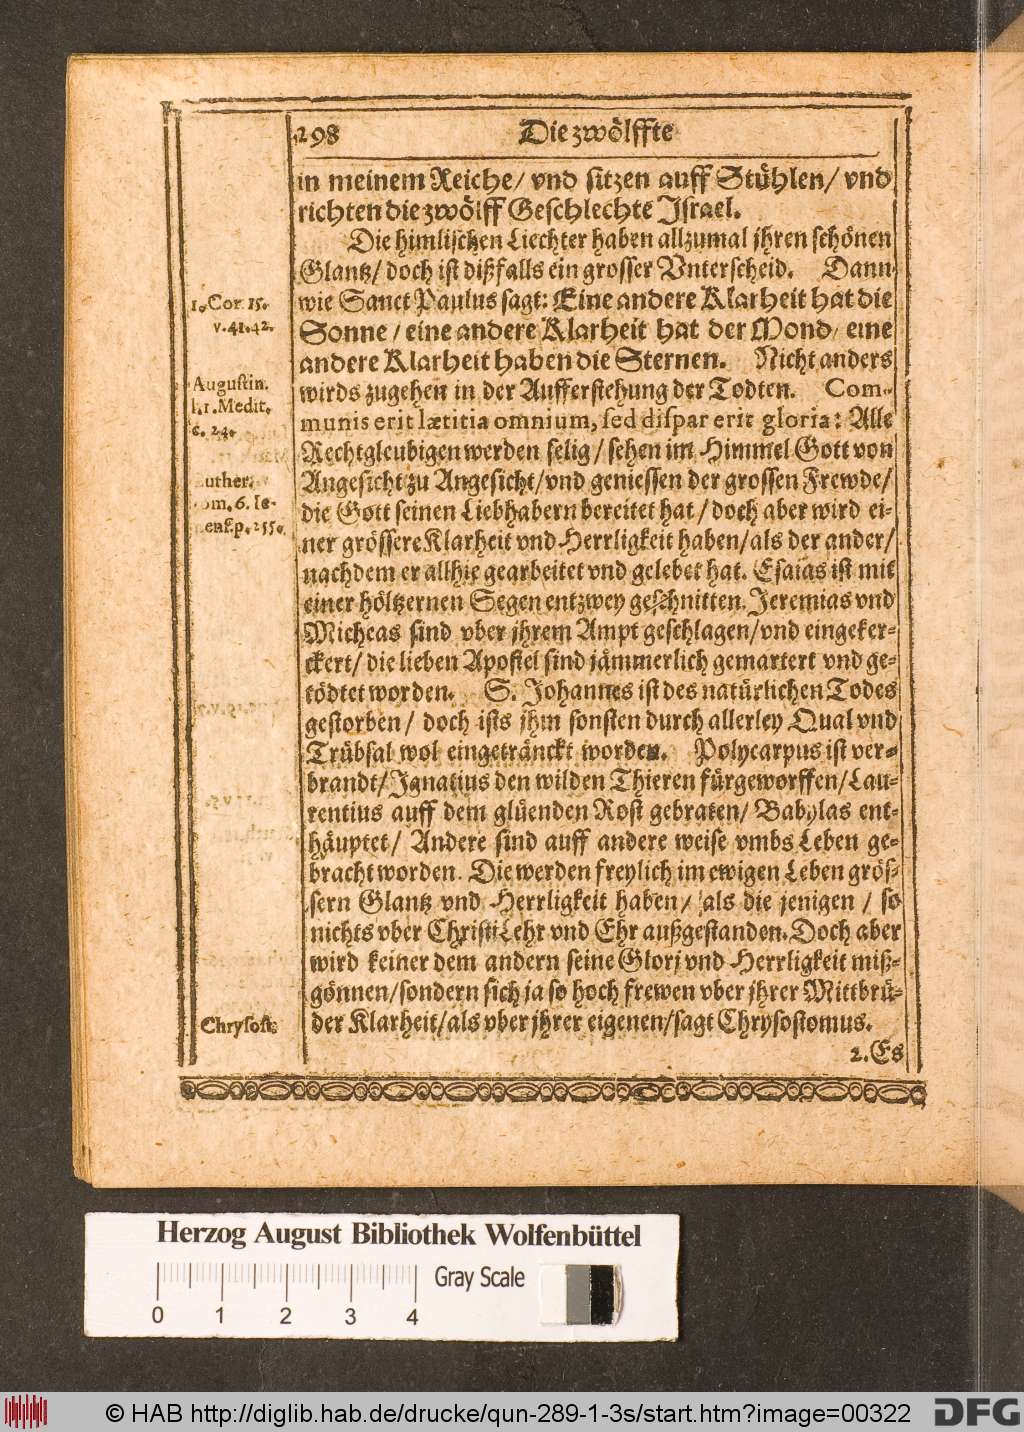 298 Die zwölffte
in meinem Reiche/ vnd sitzen auff Stühlen/ vnd
richten die zwölff Geschlechte Israel.
Die himlischen Liechter haben allzumal jhren schönen
Glantz/ doch ist dißfalls ein grosser Vnterscheid. Dann
wie Sanct Paulus sagt: Eine andere Klarheit hat die
Sonne/ eine andere Klarheit hat der Mond/ eine
andere Klarheit haben die Sternen. Nicht anders
wirds zugehen in der Aufferstehung der Todten. Com-
munis erit lætitia omnium, sed dispar erit gloria: Alle
Rechtgleubigen werden selig/ sehen im Himmel Gott von
Angesicht zu Angesicht/ vnd geniessen der grossen Frewde/
die Gott seinen Liebhabern bereitet hat/ doch aber wird ei-
ner grössere Klarheit vnd Herrligkeit haben/ als der ander/
nachdem er allhie gearbeitet vnd gelebet hat. Esaias ist mit
einer höltzernen Segen entzwey geschnitten. Jeremias vnd
Micheas sind vber jhrem Ampt geschlagen/ vnd eingeker-
ckert/ die lieben Apostel sind jämmerlich gemartert vnd ge-
tödtet worden. S. Johannes ist des natürlichen Todes
gestorben/ doch ists jhm sonsten durch allerley Qual vnd
Trübsal wol eingeträncket worden. Polycarpus ist ver-
brandt/ Ignatius den wilden Thieren fürgeworffen/ Lau-
rentius auff dem glüenden Rost gebraten/ Babylas ent-
häuptet/ Andere sind auff andere weise vmbs Leben ge-
bracht worden. Die werden freylich im ewigen Leben grös-
sern Glantz vnd Herrligkeit haben/ als die jenigen/ so
nichts vber Christi Lehr vnd Ehr außgestanden. Doch aber
wird keiner dem andern seine Glori vnd Herrligkeit miß-
gönnen/ sondern sich ja so hoch frewen vber jhrer Mittbrü-
der Klarheit/ als vber jhrer eigenen/ sagt Chrysostomus.
2. Es
1. Cor. 15.
v. 41. 42.
Augustin.
li. 1. Medit.
c. 24.
Luther.
tom. 6. Ie-
nens. p. 255.
Chrysost:
Herzog August Bibliothek Wolfenbüttel
Gray Scale
0 1 2 3 4
© HAB http://diglib.hab.de/drucke/qun-289-1-3s/start.htm?image=00322
DFG